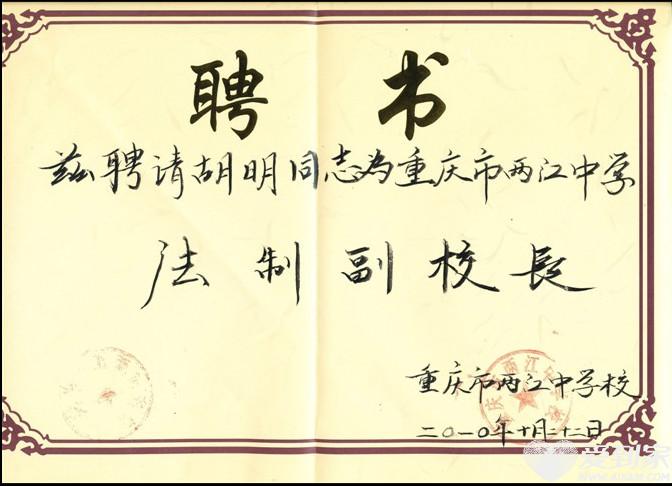 聘书
兹聘请胡明同志为重庆市两江中学
法制副校長
重庆市两江中学校
二〇一〇年十月二十二日
爱到家